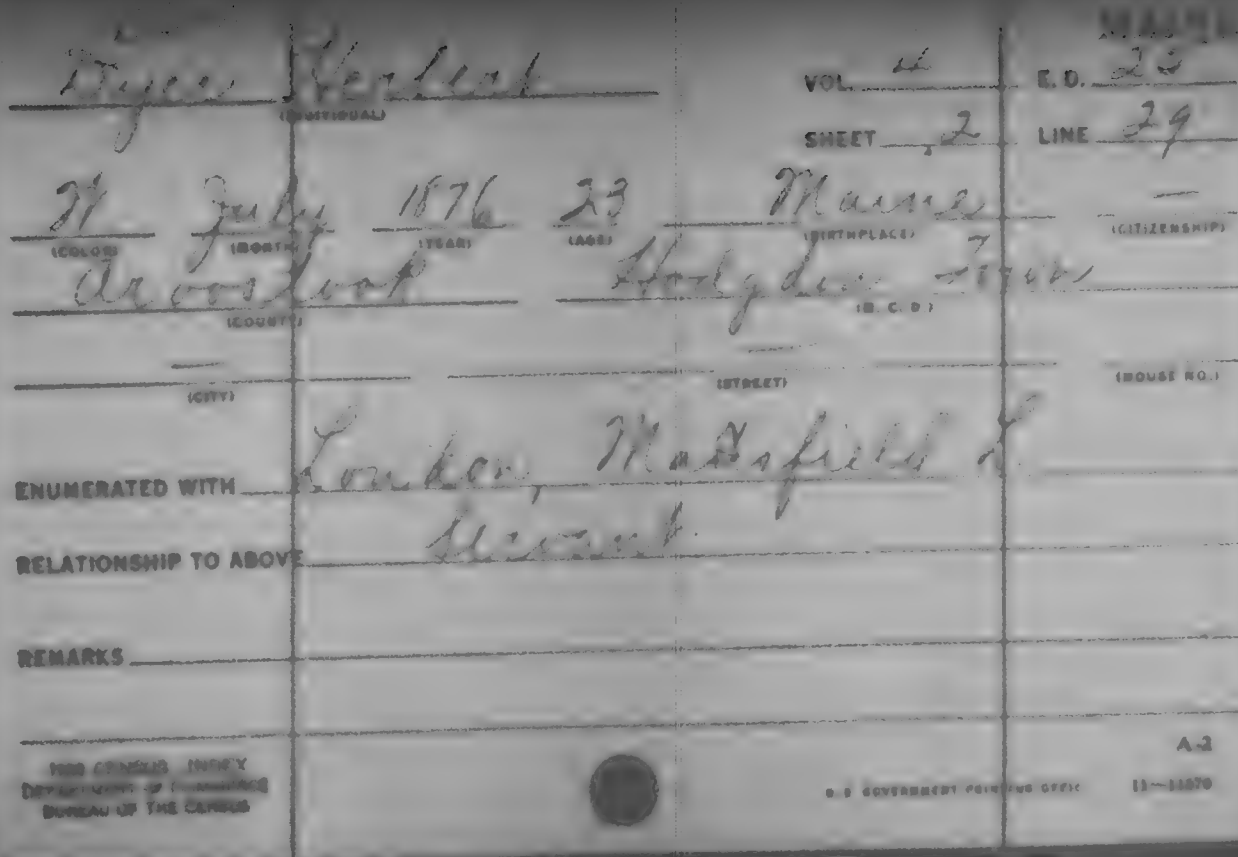 MAINE
Dyer Herbert
(INDIVIDUAL)
VOL. 4 E. D. 25
SHEET 2 LINE 29
W July 1876 23 Maine —
(COLOR) (MONTH) (YEAR) (AGE) (BIRTHPLACE) (CITIZENSHIP)
Aroostook Hodgdon Town
(COUNTY) (M. C. D.)
— —
(CITY) (STREET) (HOUSE NO.)
ENUMERATED WITH London, L
RELATIONSHIP TO ABOVE Servant
REMARKS
1900 CENSUS INDEX
DEPARTMENT OF COMMERCE
BUREAU OF THE CENSUS
A-2
U. S. GOVERNMENT PRINTING OFFICE 11—11870